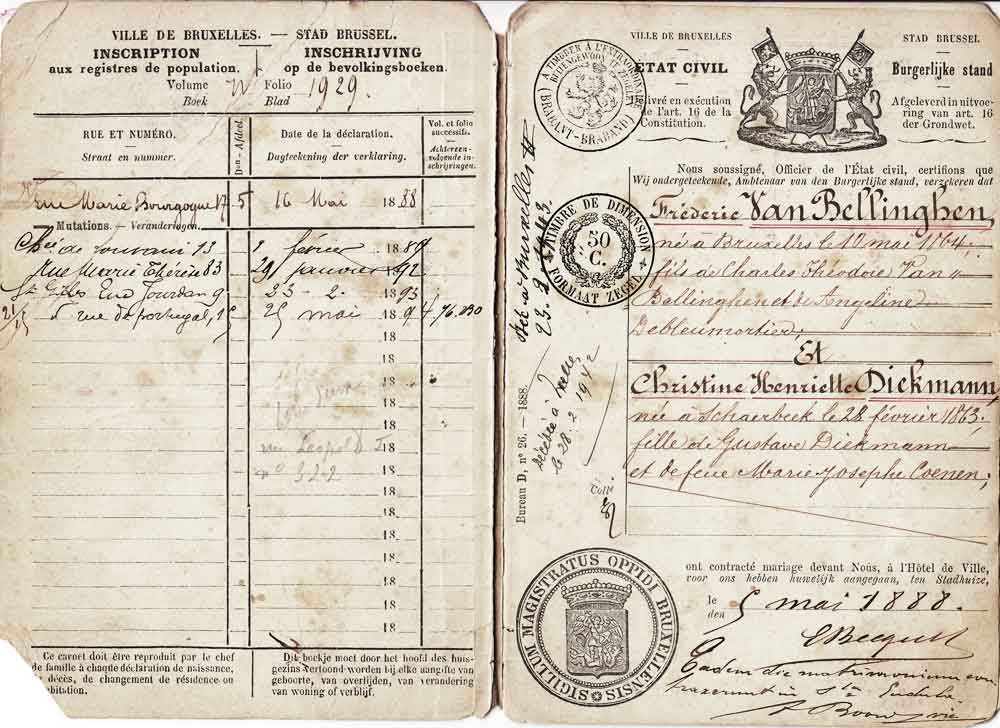 VILLE DE BRUXELLES. — STAD BRUSSEL.
INSCRIPTION
aux registres de population.
INSCHRIJVING
op de bevolkingsboeken.
Volume
Boek
Folio
Blad
1929.
RUE ET NUMÉRO.
Straat en nummer.
Don - Afdeel.
Date de la déclaration.
Dagteekening der verklaring.
Vol. et folio successifs.
Achtereen-volgende in-schrijvingen.
Rue Marie Bourgogne 17 5 16 Mai 1888
Mutations. — Veranderingen.
Chée de Louvain 13 1 février 1889
Rue Marie Thérèse 83 29 janvier 1892
St Gilles Rue Jourdan 9 23 - 2. - 1893
rue de portugal, 25 mai 1894
18
18
18
18
18
rue Leopold I
n° 322
18
18
18
18
18
18
18
18
Ce carnet doit être reproduit par le chef
de famille à chaque déclaration de naissance,
de décès, de changement de résidence ou
Dit boekje moet door het hoofd des huis-
gezins vertoond worden bij elke aangifte van
geboorte, van overlijden, van verandering
van woning of verblijf.
VILLE DE BRUXELLES
ÉTAT CIVIL
Livré en exécution
de l'art. 16 de la
Constitution.
STAD BRUSSEL
Burgerlijke stand
Afgeleverd in uitvoe-
ring van art. 16
der Grondwet.
A TIMBRER A L'EXTRAORDINAIRE
BUITENGEWOON TE ZEGELEN
(BRABANT-BRABAND)
TIMBRE DE DIMENSION
50
C.
FORMAAT ZEGEL
Nous soussigné, Officier de l'État civil, certifions que
Wij ondergeteekende, Ambtenaar van den Burgerlijke stand, verzekeren dat
Fréderic Van Bellinghen,
né à Bruxelles le 10 mai 1864.
fils à Charles Théodore Van
Bellinghen et de Angeline
Debleumortier;
Et
Christine Henriette Diekmann,
née à Schaerbeek le 28 février 1863;
fille de Gustave Diekmann
et de feue Marie Josephe Coenen;
Bureau D, n° 26. — 1888.
Décédée à
le 28.2.1942
ont contracté mariage devant Nous, à l'Hôtel de Ville,
voor ons hebben huwelijk aangegaan, ten Stadhuize,
le
den
5 mai 1888.
SIGILLUM MAGISTRATUS OPPIDI BRUXELLENSIS
Eadem die matrimonium